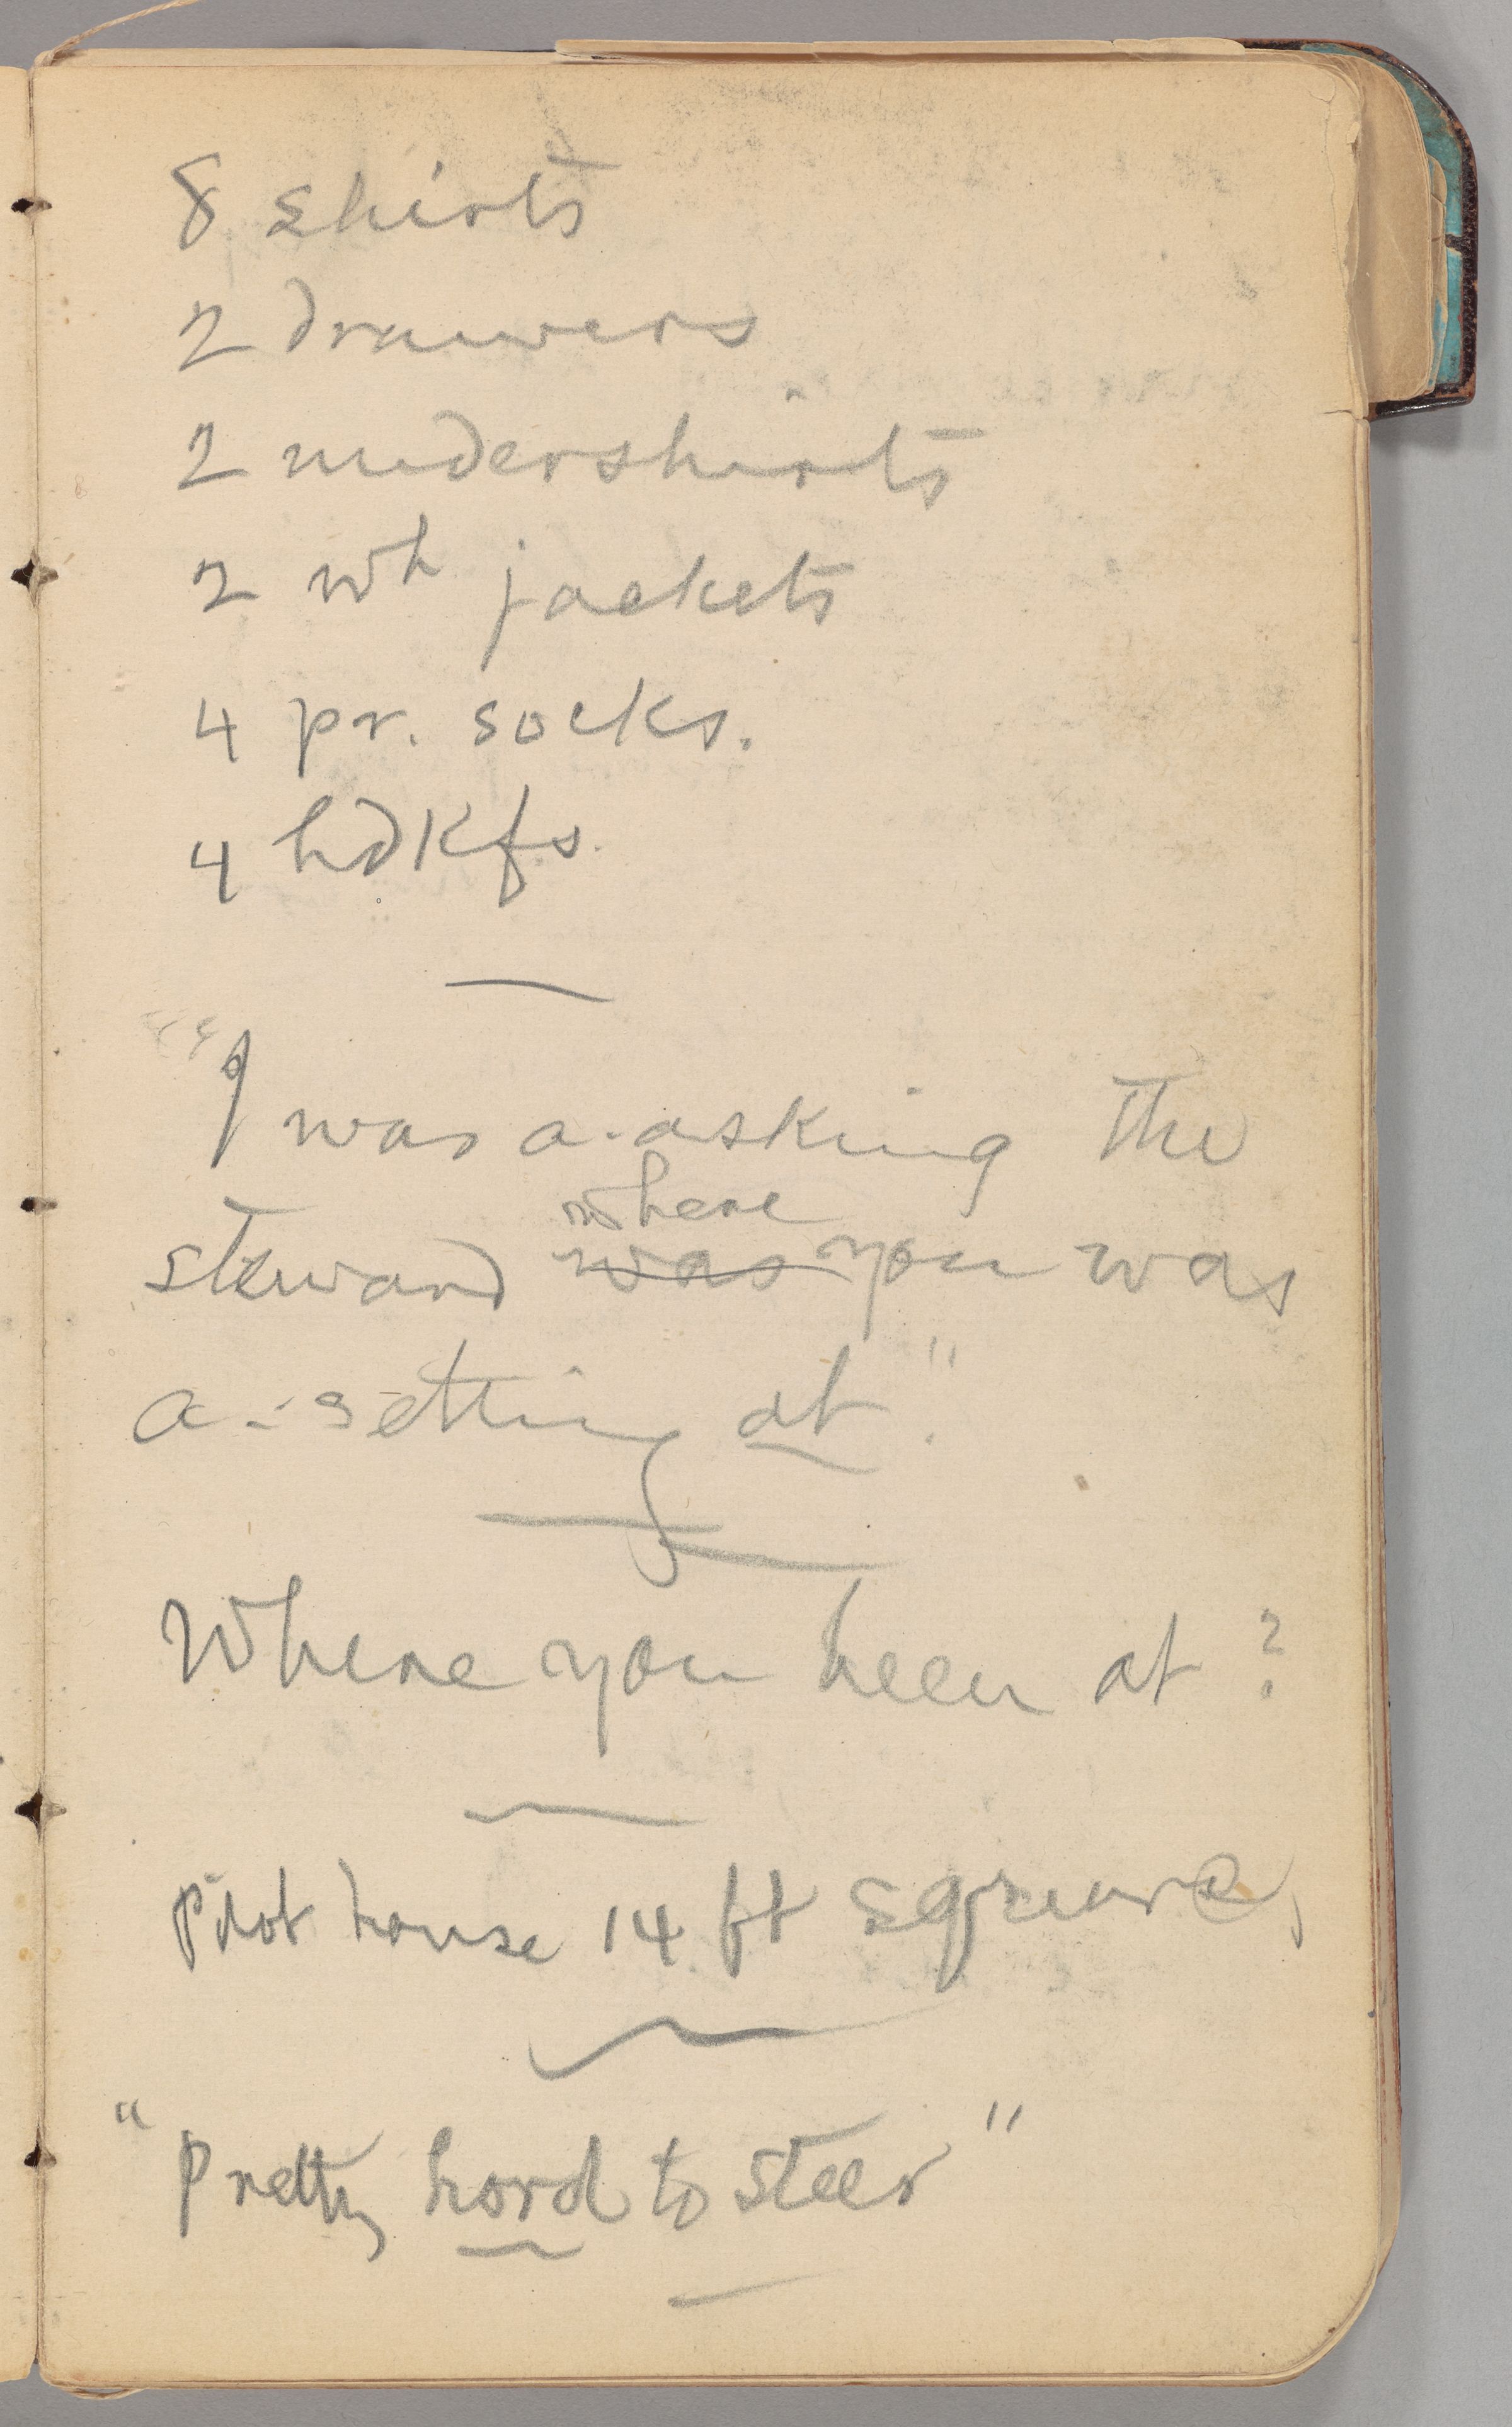 8 shirts
2 drawers
2 undershirts
2 wh jackets
4 pr. socks.
4 hdkfs.
"I was a-asking the
where
steward was you was
a-setting at."
Where you been at?
Pilot house 14 ft square,
"Pretty hard to steer"